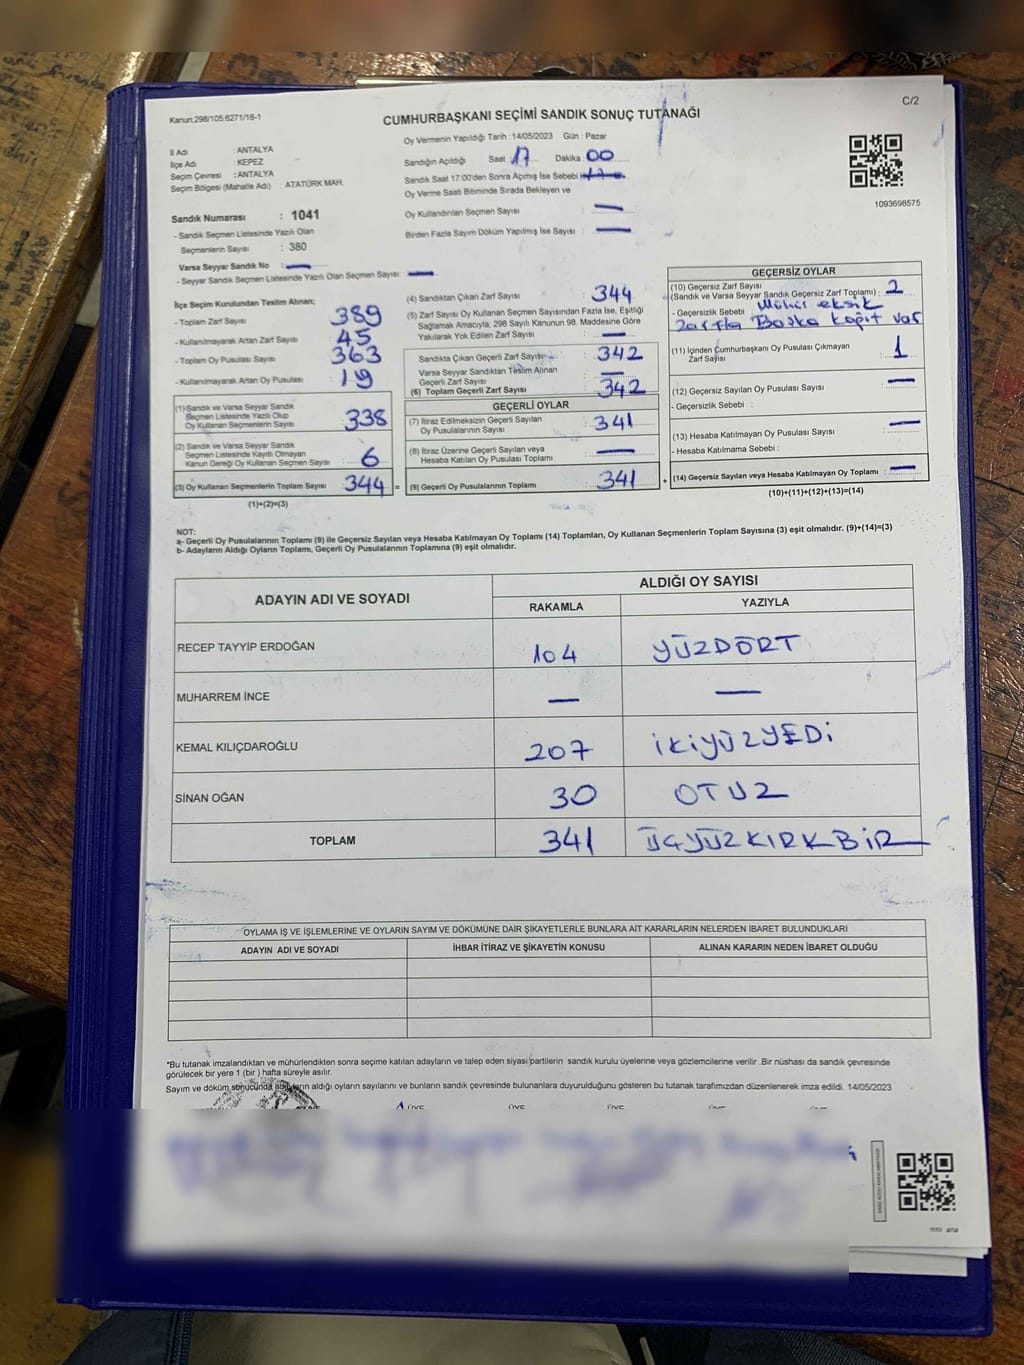 C/2
Kanun:298/105;6271/18-1
CUMHURBAŞKANI SEÇİMİ SANDIK SONUÇ TUTANAĞI
Oy Vermenin Yapıldığı Tarih :14/05/2023 Gün : Pazar
İl Adı : ANTALYA
İlçe Adı : KEPEZ
Seçim Çevresi : ANTALYA
Seçim Bölgesi (Mahalle Adı) : ATATÜRK MAH.
Sandığın Açıldığı Saat : 17 Dakika : 00
Sandık Saat 17:00'den Sonra Açımış İse Sebebi
Oy Verme Saati Bitiminde Sırada Bekleyen ve
Oy Kullandırılan Seçmen Sayısı : —
Birden Fazla Sayım Döküm Yapılmış İse Sayısı : —
1093698575
Sandık Numarası : 1041
- Sandık Seçmen Listesinde Yazılı Olan
Seçmenlerin Sayısı : 380
Varsa Seyyar Sandık No : —
- Seyyar Sandık Seçmen Listesinde Yazılı Olan Seçmen Sayısı : —
İlçe Seçim Kurulundan Teslim Alınan;
- Toplam Zarf Sayısı : 389
- Kullanılmayarak Artan Zarf Sayısı : 45
- Toplam Oy Pusulası Sayısı : 363
- Kullanılmayarak Artan Oy Pusulası : 19
(1) Sandık ve Varsa Seyyar Sandık
Seçmen Listesinde Yazılı Olup
Oy Kullanan Seçmenlerin Sayısı : 338
(2) Sandık ve Varsa Seyyar Sandık
Seçmen Listesinde Kayıtlı Olmayan
Kanun Gereği Oy Kullanan Seçmen Sayısı : 6
(3) Oy Kullanan Seçmenlerin Toplam Sayısı : 344 =
(1)+(2)=(3)
(4) Sandıktan Çıkan Zarf Sayısı : 344
(5) Zarf Sayısı Oy Kullanan Seçmen Sayısından Fazla İse, Eşitliği
Sağlamak Amacıyla, 298 Sayılı Kanunun 98. Maddesine Göre
Yakılarak Yok Edilen Zarf Sayısı : —
Sandıkta Çıkan Geçerli Zarf Sayısı : 342
Varsa Seyyar Sandıktan Teslim Alınan
Geçerli Zarf Sayısı : —
(6) Toplam Geçerli Zarf Sayısı : 342
GEÇERLİ OYLAR
(7) İtiraz Edilmeksizin Geçerli Sayılan
Oy Pusulalarının Sayısı : 341
(8) İtiraz Üzerine Geçerli Sayılan veya
Hesaba Katılan Oy Pusulası Toplamı : —
(9) Geçerli Oy Pusulalarının Toplamı : 341 +
GEÇERSİZ OYLAR
(10) Geçersiz Zarf Sayısı
(Sandık ve Varsa Seyyar Sandık Geçersiz Zarf Toplamı) : 2
- Geçersizlik Sebebi : Mühür eksik
Zarfta Başka kağıt var
(11) İçinden Cumhurbaşkanı Oy Pusulası Çıkmayan
Zarf Sayısı : 1
(12) Geçersiz Sayılan Oy Pusulası Sayısı : —
- Geçersizlik Sebebi :
(13) Hesaba Katılmayan Oy Pusulası Sayısı : —
- Hesaba Katılmama Sebebi :
(14) Geçersiz Sayılan veya Hesaba Katılmayan Oy Toplamı : —
(10)+(11)+(12)+(13)=(14)
NOT:
a- Geçerli Oy Pusulalarının Toplamı (9) ile Geçersiz Sayılan veya Hesaba Katılmayan Oy Toplamı (14) Toplamları, Oy Kullanan Seçmenlerin Toplam Sayısına (3) eşit olmalıdır. (9)+(14)=(3)
b- Adayların Aldığı Oyların Toplamı, Geçerli Oy Pusulalarının Toplamına (9) eşit olmalıdır.
ADAYIN ADI VE SOYADI ALDIĞI OY SAYISI
RAKAMLA YAZIYLA
RECEP TAYYİP ERDOĞAN 104 YÜZDÖRT
MUHARREM İNCE — —
KEMAL KILIÇDAROĞLU 207 İKİYÜZYEDİ
SİNAN OĞAN 30 OTUZ
TOPLAM 341 ÜÇYÜZKIRKBİR
OYLAMA İŞ VE İŞLEMLERİNE VE OYLARIN SAYIM VE DÖKÜMÜNE DAİR ŞİKAYETLERLE BUNLARA AİT KARARLARIN NELERDEN İBARET BULUNDUKLARI
ADAYIN ADI VE SOYADI İHBAR İTİRAZ VE ŞİKAYETİN KONUSU ALINAN KARARIN NEDEN İBARET OLDUĞU
*Bu tutanak imzalandıktan ve mühürlendikten sonra seçime katılan adayların ve talep eden siyasi partilerin sandık kurulu üyelerine veya gözlemcilerine verilir .Bir nüshası da sandık çevresinde
görülecek bir yere 1 (bir ) hafta süreyle asılır.
Sayım ve döküm sonucunda adayların aldığı oyların sayılarını ve bunların sandık çevresinde bulunanlara duyurulduğunu gösteren bu tutanak tarafımızdan düzenlenerek imza edildi. 14/05/2023
ÜYE ÜYE ÜYE ÜYE ÜYE